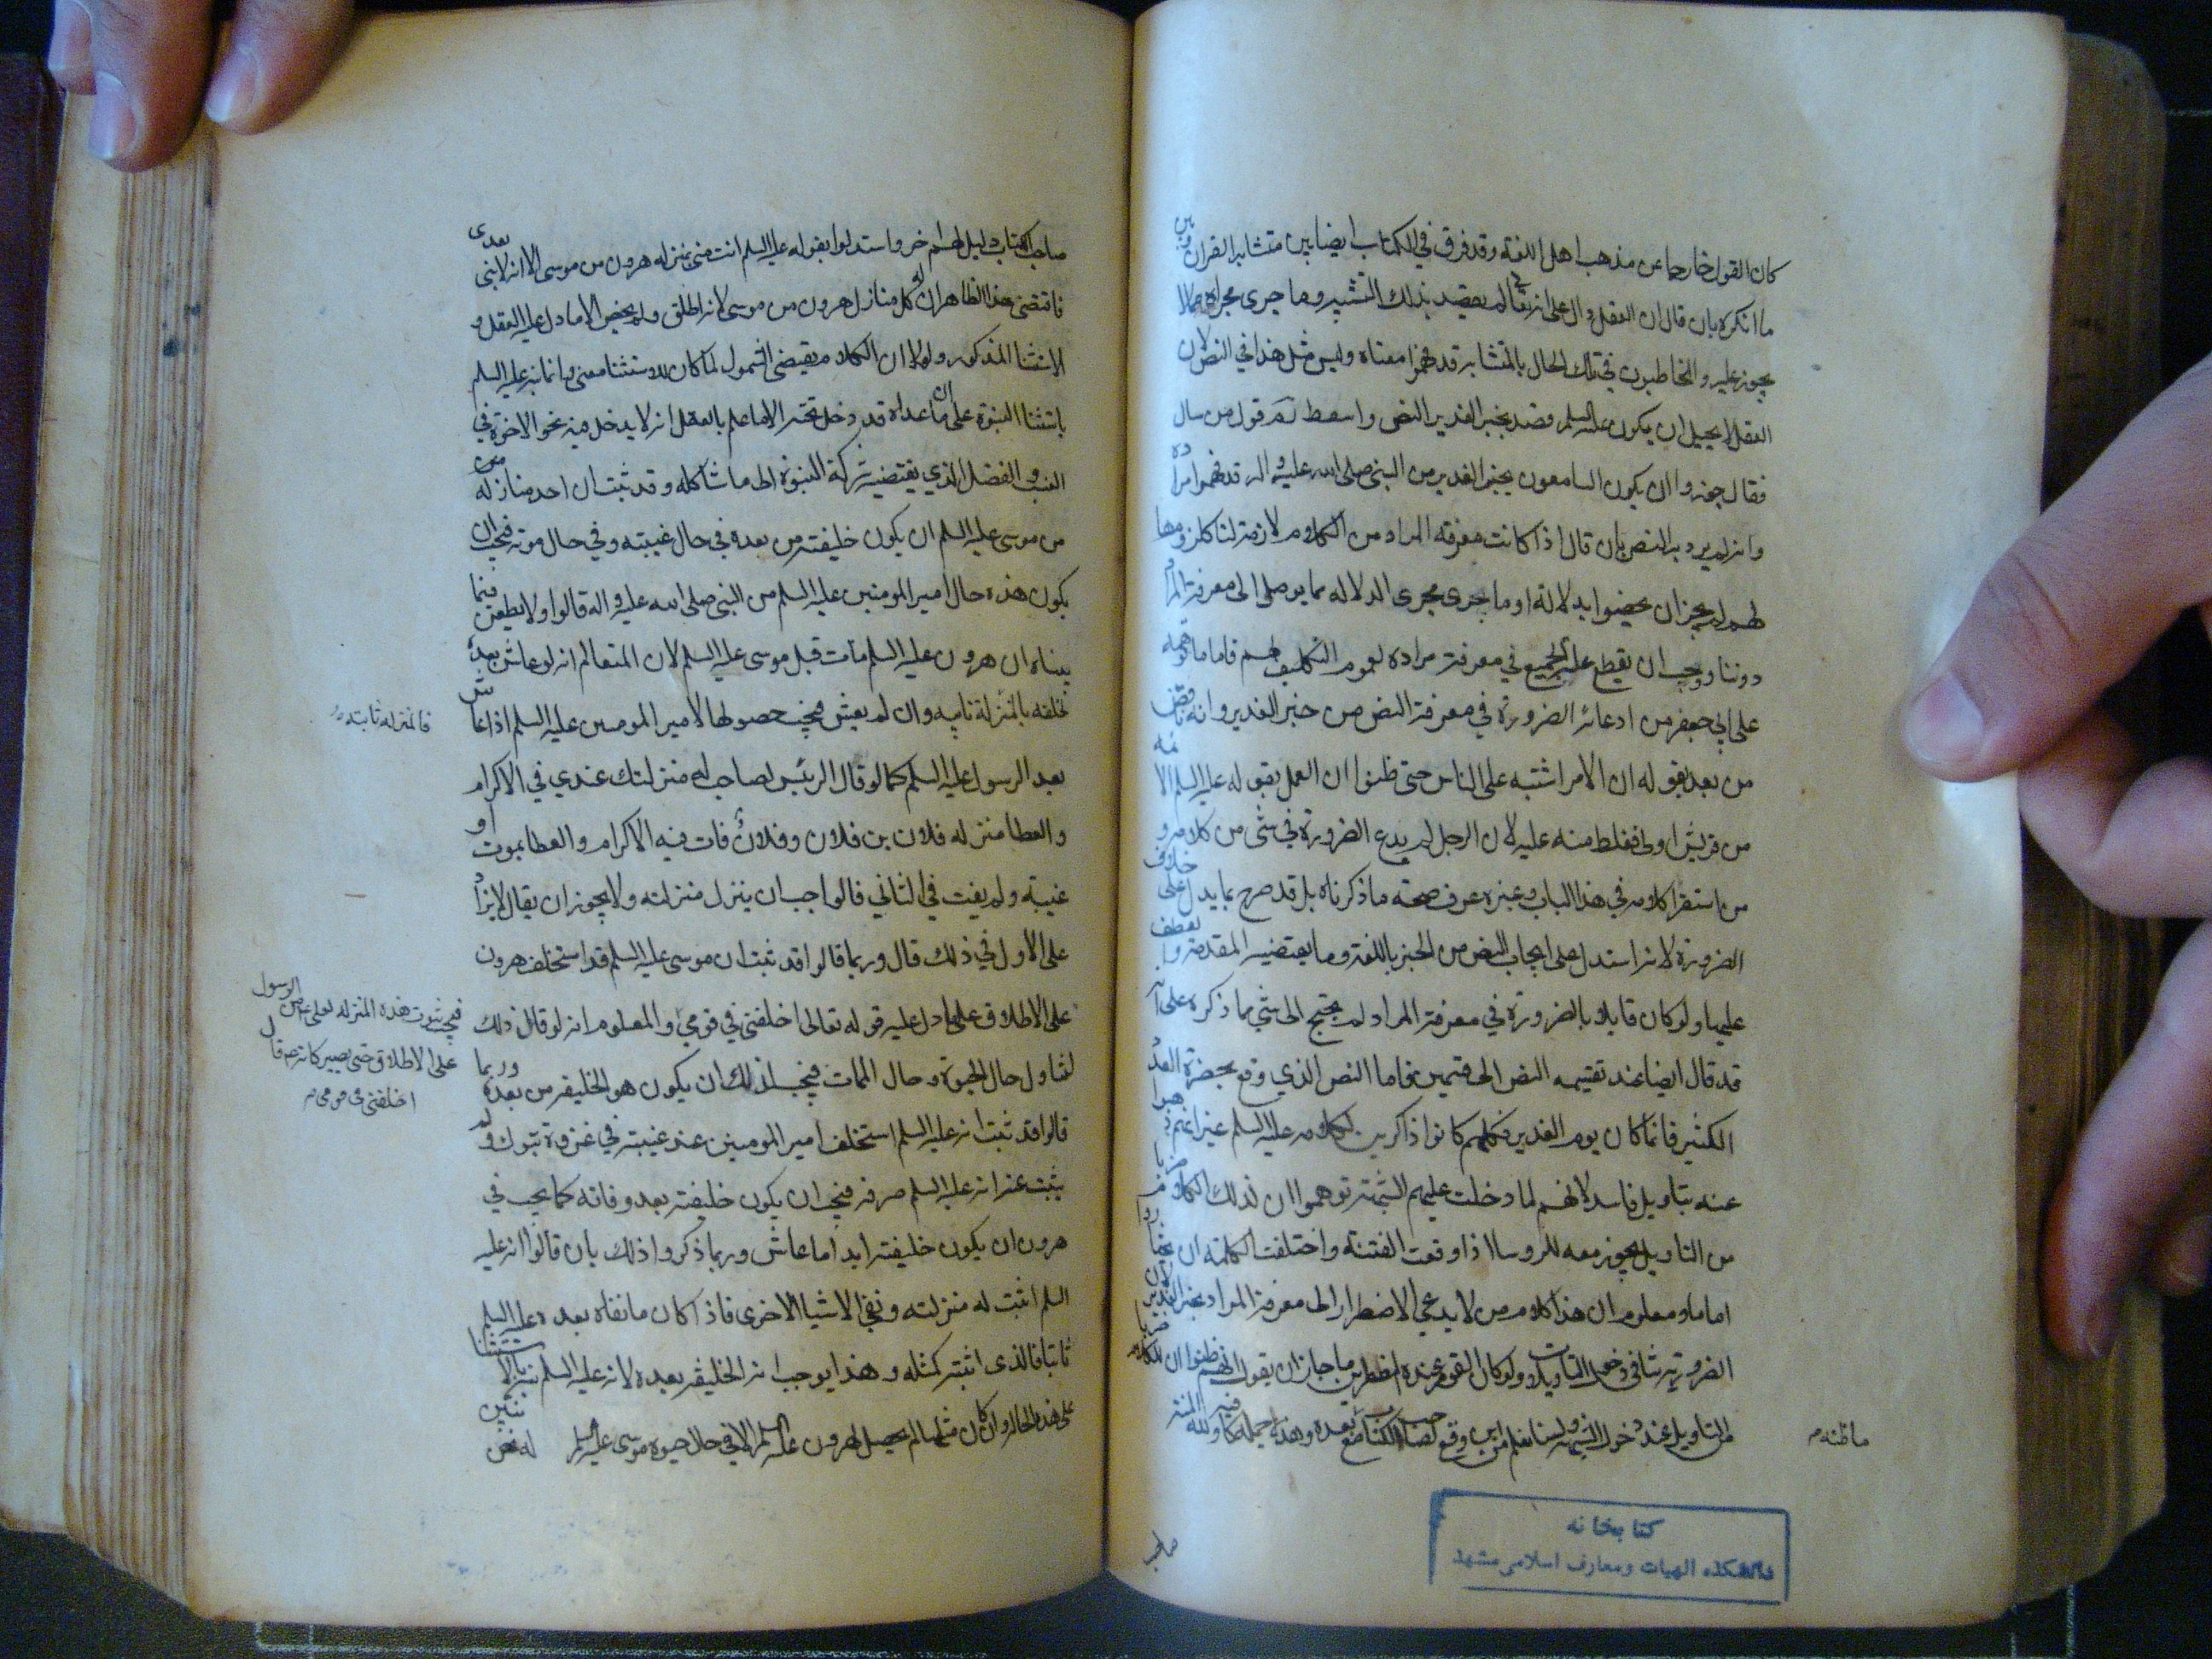 كان القول خارجا عن مذهب اهل اللغة وقد فرق في الكتاب ايضا بين متشابه القران وبين
ما انكره بان قال ان العقل دال على انه تعالى لم يقصد بذلك التشبيه وما جرى مجراه مما لا
يجوز عليه والمخاطبون في تلك الحال بالمتشابه قد فهموا معناه وليس مثل هذا في النص لان
العقل لا يحيل ان يكون عليه السلم قصد بخبر الغدير النص واسقط قول من سال
فقال جوزوا ان يكون السامعون بخبر الغدير من النبي صلى الله عليه واله قد فهموا مراده
وانه لم يرد به النص بان قال اذا كانت معرفة المراد من الكلام لازمة لنا كلزومها
لهم لم يجز ان يخصوا بدلالة او ما جرى مجرى الدلاله مما يوصل الى معرفة المراد
دوننا ووجب ان يقطع على الجميع في معرفة مراده لعموم التكليف لهم فاما ما توهمه
على ابي جعفر من ادعائه الضرورة في معرفة النص من خبر الغدير وانه ناقض
من بعد بقوله ان الامر اشتبه على الناس حتى ظنوا ان العمل بقوله عليه السلم الائمة
من قريش اولى فغلط منه عليه لان الرجل لم يدع الضرورة في شي من كلامه و
من استقرا كلامه في هذا الباب وغيره عرف صحة ما ذكرناه بل قد صرح بما يدل على خلاف
الضرورة لانه استدل على ايجاب النص من الخبر باللغة وما يقتضيه المقدمة وما يعطف
عليها ولو كان قايلا بالضرورة في معرفة المراد لم يحتج الى شي مما ذكره على انه
قد قال ايضا عند تقسيمه النص الى قسمين فاما النص الذي وقع بحضرة العدد
الكثير فانما كان يوم الغدير فكلهم كانوا ذاكرين لكلامه عليه السلم غير انهم ذهبوا
عنه بتاويل فاسد لانهم لما دخلت عليهم الشبهة توهموا ان لذلك الكلام ضربا
من التاويل يجوز معه للروسا اذا وقعت الفتنة واختلفت الكلمة ان يختاروا
اماما ومعلوم ان هذا كلام من لا يدعي الاضطرار الى معرفة المراد بخبر الغدير لان
الضرورة تنافي دخول التاويلات ولو كان القوم عنده مضطرين ما جاز ان يقول انهم ظنوا ان للكلام ضربا
من التاويل عند دخول الشبهة ولسنا نعلم من اين وقع لصاحب الكتاب ما ظنه وهذه جملة كافية والمنة لله
ما ظنه
صاحب
كتابخانه
دانشكده الهيات ومعارف اسلامى مشهد
صاحب الكتاب دليل لهم اخر واستدلوا بقوله عليه السلم انت مني بمنزله هرون من موسى الا انه لا نبي بعدى
فاقتضى هذا الظاهر ان له كل منازل هرون من موسى لانه اطلق ولم يخص الا ما دل عليه العقل و
الاستثنا المذكور ولولا ان الكلام يقتضي الشمول لما كان للاستثنا معنى وانما نبه عليه السلم
باستثنا النبوة على ان ما عداه قد دخل تحته الا ما علم بالعقل انه لا يدخل فيه نحو الاخوة في
النسب والفضل الذي يقتضيه شركة النبوة الى ما شاكله وقد ثبت ان احد منازله من
من موسى عليه السلم ان يكون خليفته من بعده في حال غيبته وفي حال موته فيجب ان
يكون هذه حال امير المومنين عليه السلم من النبي صلى الله عليه واله قالوا ولا يطعن فيما
بيناه ان هرون عليه السلم مات قبل موسى عليه السلم لان المتعالم انه لو عاش بعده
لخلفه بالمنزلة ثابته وان لم يعش فيجب حصولها لامير المومنين عليه السلم اذا عاش
بعد الرسول عليه السلم كما لو قال الرئيس لصاحب له منزلتك عندي في الاكرام
والعطا منزله فلان بن فلان وفلان فات فيه الاكرام والعطا بموت او
غيبته ولم يفت في الثاني فالواجب ان ينزل منزلته ولا يجوز ان يقال لا يزاد
على الاول في ذلك قال وربما قالوا قد ثبت ان موسى عليه السلم قد استخلف هرون
على الاطلاق على ما دل عليه قوله تعالى اخلفني في قومي والمعلوم انه لو قال ذلك
لتناول حال الحيوة وحال الممات فيجب لذلك ان يكون هو الخليفة من بعده وربما
قالوا قد ثبت انه عليه السلم استخلف امير المومنين عند غيبته في غزوة تبوك ولم
يثبت عنه انه عليه السلم صرفه فيجب ان يكون خليفته بعد وفاته كما يجب في
هرون ان يكون خليفته ابدا ما عاش وربما ذكروا ذلك بان قالوا انه عليه
السلم اثبت له منزلته ونفي الاشيا الاخرى فاذا كان ما نفاه بعده عليه السلم
ثابتا فالذى اثبته كمثله وهذا يوجب انه الخليفه بعده لانه عليه السلم نبه بالاستثنا
على هذه الحال وان كان مثلها لم يحصل لهرون عليه السلم الا في حال حيوة موسى عليه السلم
فالمنزله ثابته
فيجب ثبوت هذه المنزله لعلي من الرسول
على الاطلاق حتى يصير كانه قال
اخلفني في قومي